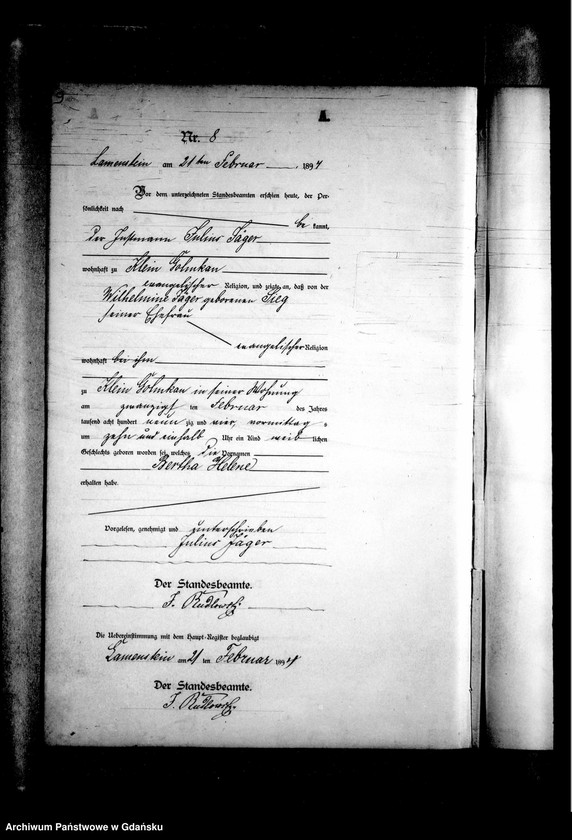 A.
Nr. 8
Lamenstein am 21ten Februar 1894
Vor dem unterzeichneten Standesbeamten erschien heute, der Per-
sönlichkeit nach
be kannt,
der Instmann Julius Jäger
wohnhaft zu Klein Golmkau
evangelischer Religion, und zeigte an, daß von der
Wilhelmine Jäger geborenen Sieg
seiner Ehefrau
evangelischer Religion
wohnhaft bei ihm
zu Klein Golmkau in seiner Wohnung
am zwanzigsten ten Februar des Jahres
tausend acht hundert neun zig und vier, vormittag s
um zehn und einhalb Uhr ein Kind weib lichen
Geschlechts geboren worden sei, welches die Vornamen
Bertha Helene
erhalten habe.
Vorgelesen, genehmigt und unterschrieben
Julius Jäger
Der Standesbeamte.
F. Rudlowski
Die Uebereinstimmung mit dem Haupt-Register beglaubigt
Lamenstein am 21 ten Februar 1894
Der Standesbeamte.
F. Rudlowski
Archiwum Państwowe w Gdańsku